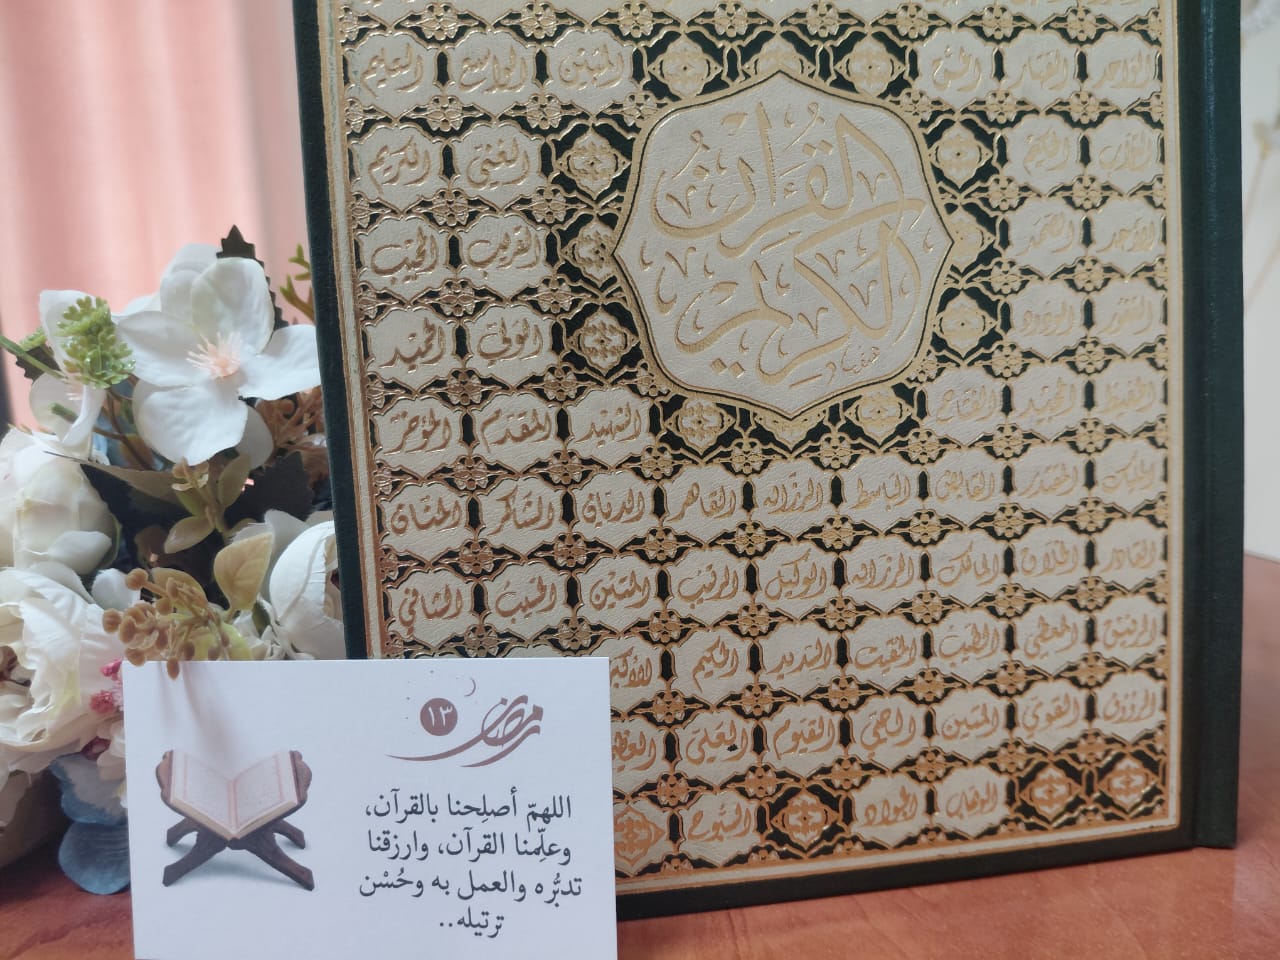 الواحد القهار السميع المبين الواسع العليم
التواب الحكيم الغني الكريم
الأحد الصمد القريب المجيب
الغفور الودود الولي الحميد
الحفيظ المجيد الفتاح الشهيد المقدم المؤخر
المليك المقتدر القابض الباسط الرزاق القاهر الديان الشاكر المنان
القادر الخلاق المالك الرزاق الوكيل الرقيب المتين المسيب الشافي
الرفيق المعطي الطيب المقيت السيد الحكيم الأكبر
الرزاق القوي المتين الحي القيوم العلي العظيم
الوهاب الجواد السبوح
القرآن
الكريم
رمضان ١٣
اللهمّ أصلِحنا بالقرآن،
وعلِّمنا القرآن، وارزقنا
تدبُّره والعمل به وحُسْن
ترتيله..